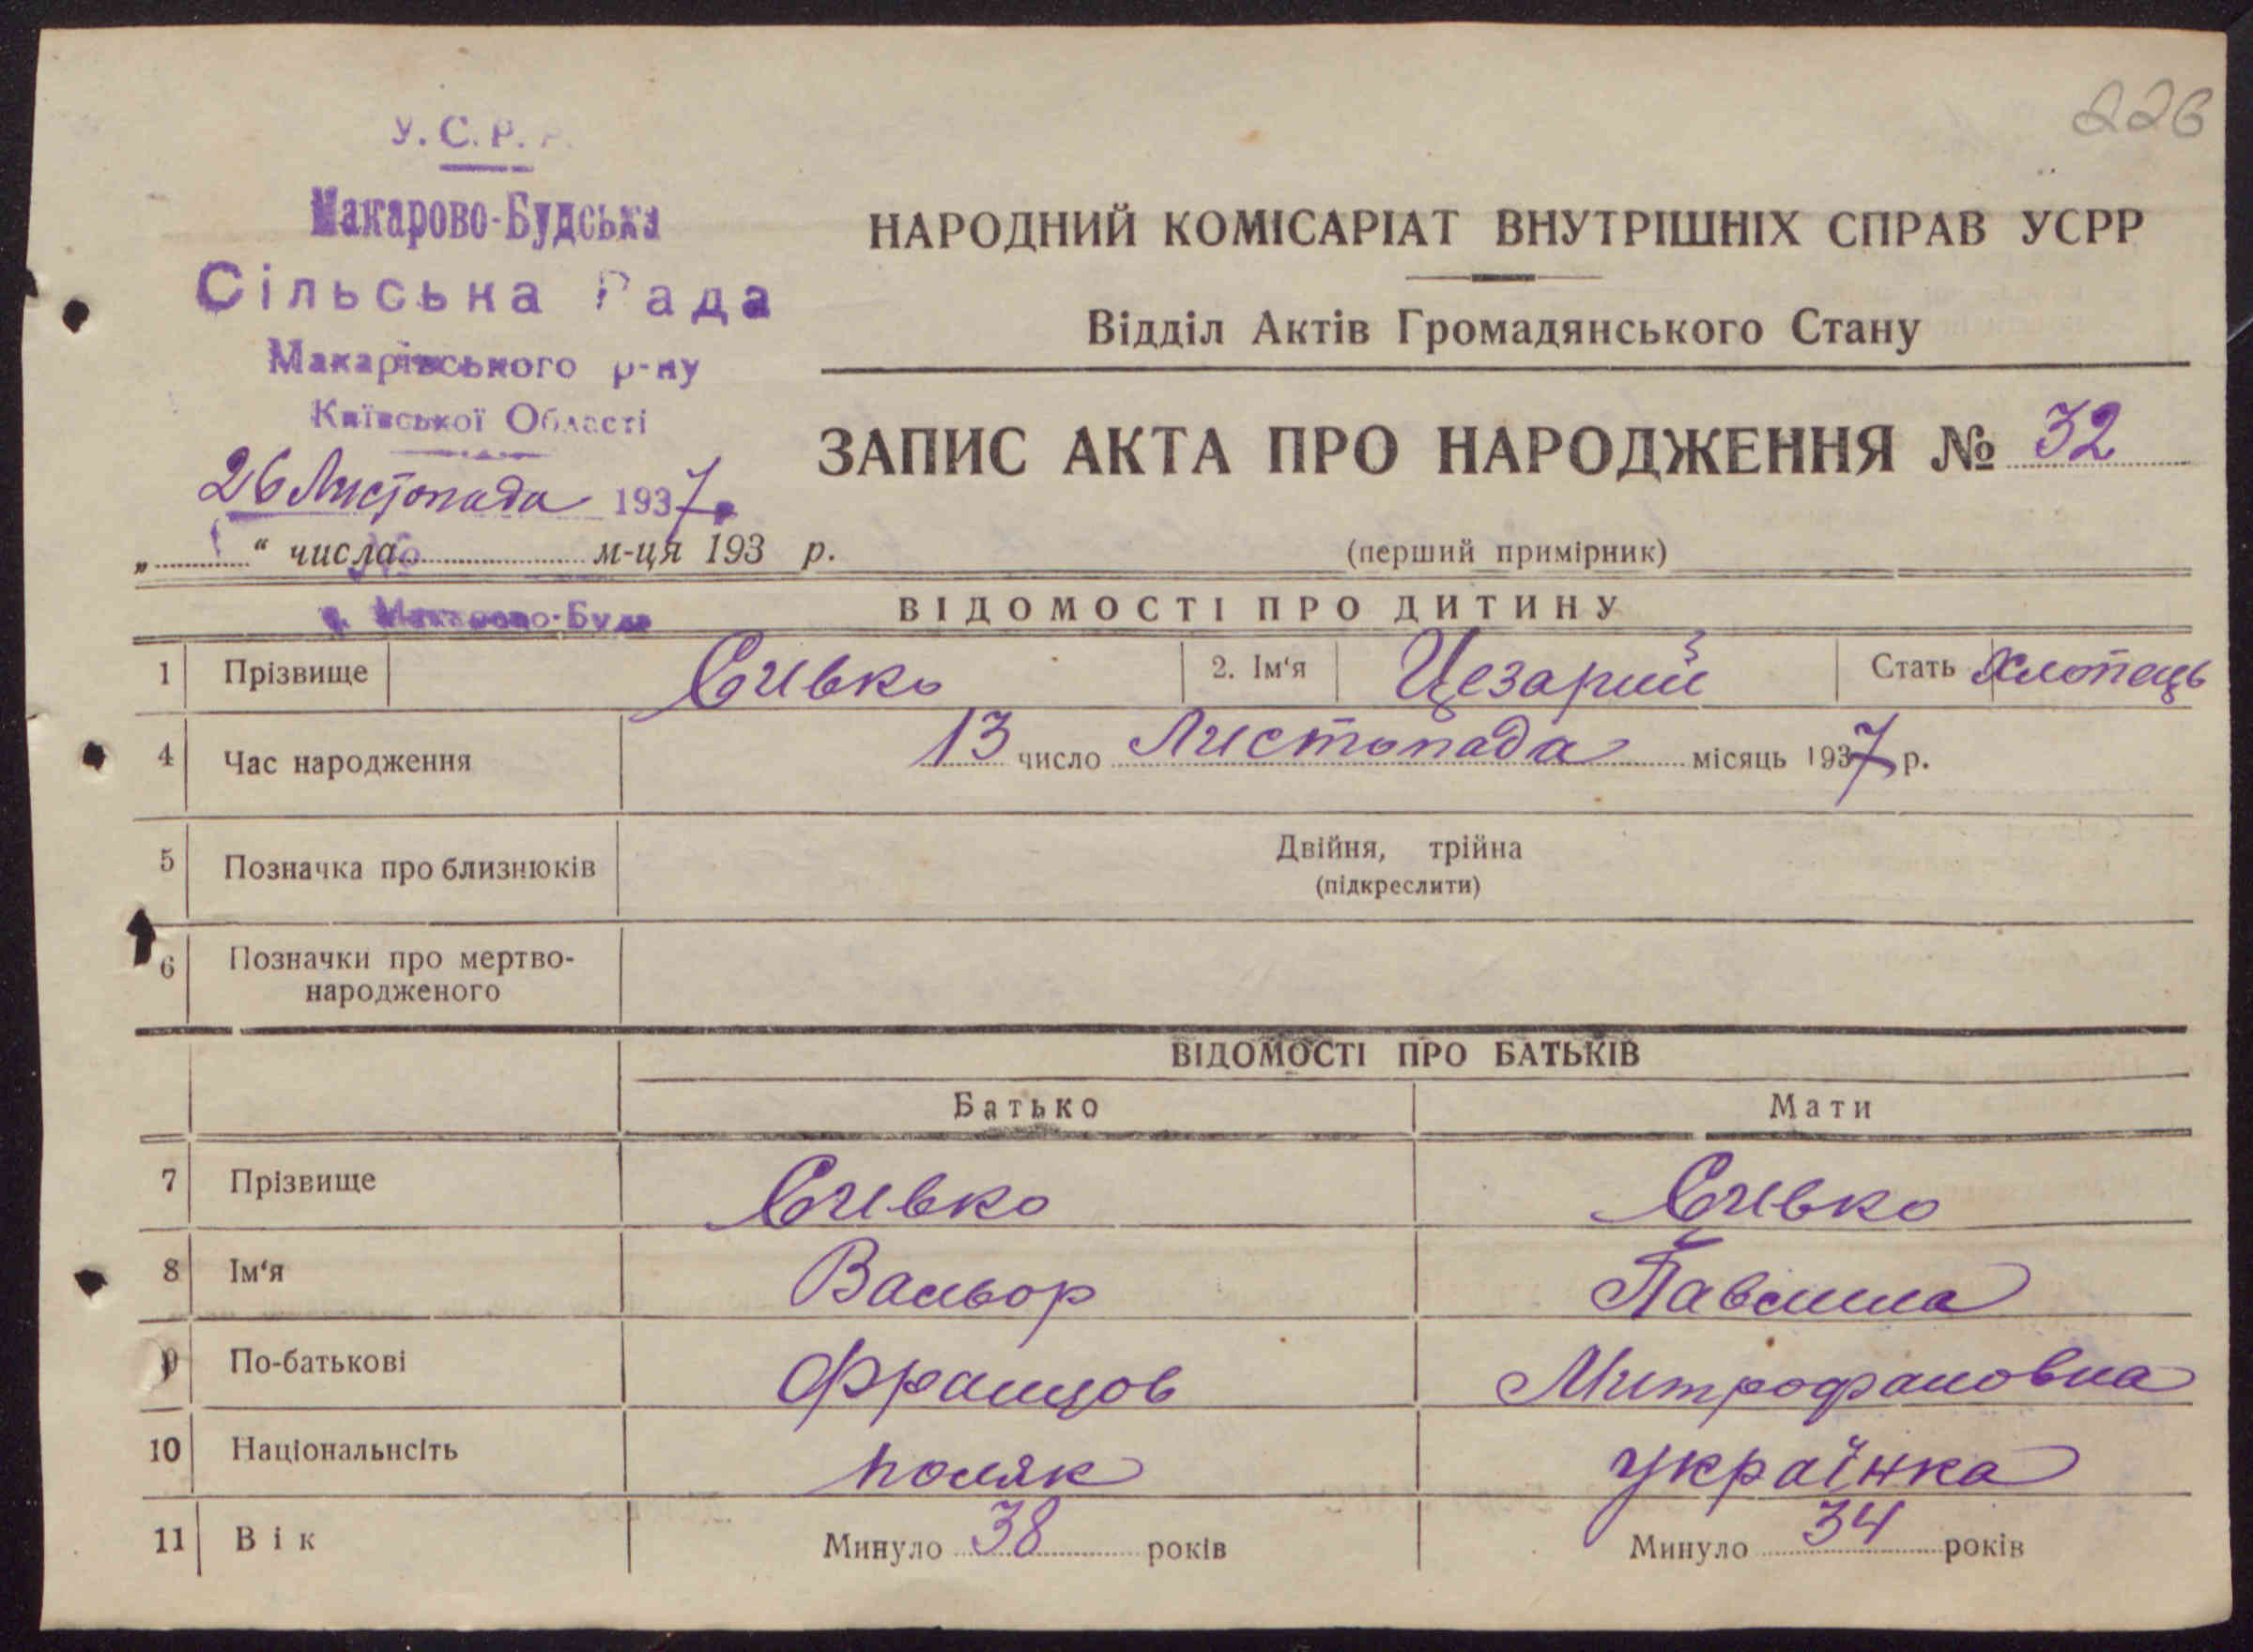 226
У.С.Р.Р.
Макарово-Будська
Сільська Рада
Макарівського р-ну
Київської Області
26 Листопада 1937
„ “ числа м-ця 193 р.
с. Макарово-Буда
НАРОДНИЙ КОМІСАРІАТ ВНУТРІШНІХ СПРАВ УСРР
Відділ Актів Громадянського Стану
ЗАПИС АКТА ПРО НАРОДЖЕННЯ № 32
(перший примірник)
ВІДОМОСТІ ПРО ДИТИНУ
1 Прізвище Сивко 2. Ім‘я Цезарий Стать Хлопець
4 Час народження 13 число Листопада місяць 1937 р.
5 Позначка про близнюків Двійня, трійна
(підкреслити)
6 Позначки про мертво-
народженого
ВІДОМОСТІ ПРО БАТЬКІВ
Батько Мати
7 Прізвище Сивко Сивко
8 Ім‘я Вальор Павлина
9 По-батькові Францов Митрофановна
10 Національнсіть поляк українка
11 Вік Минуло 38 років Минуло 34 років